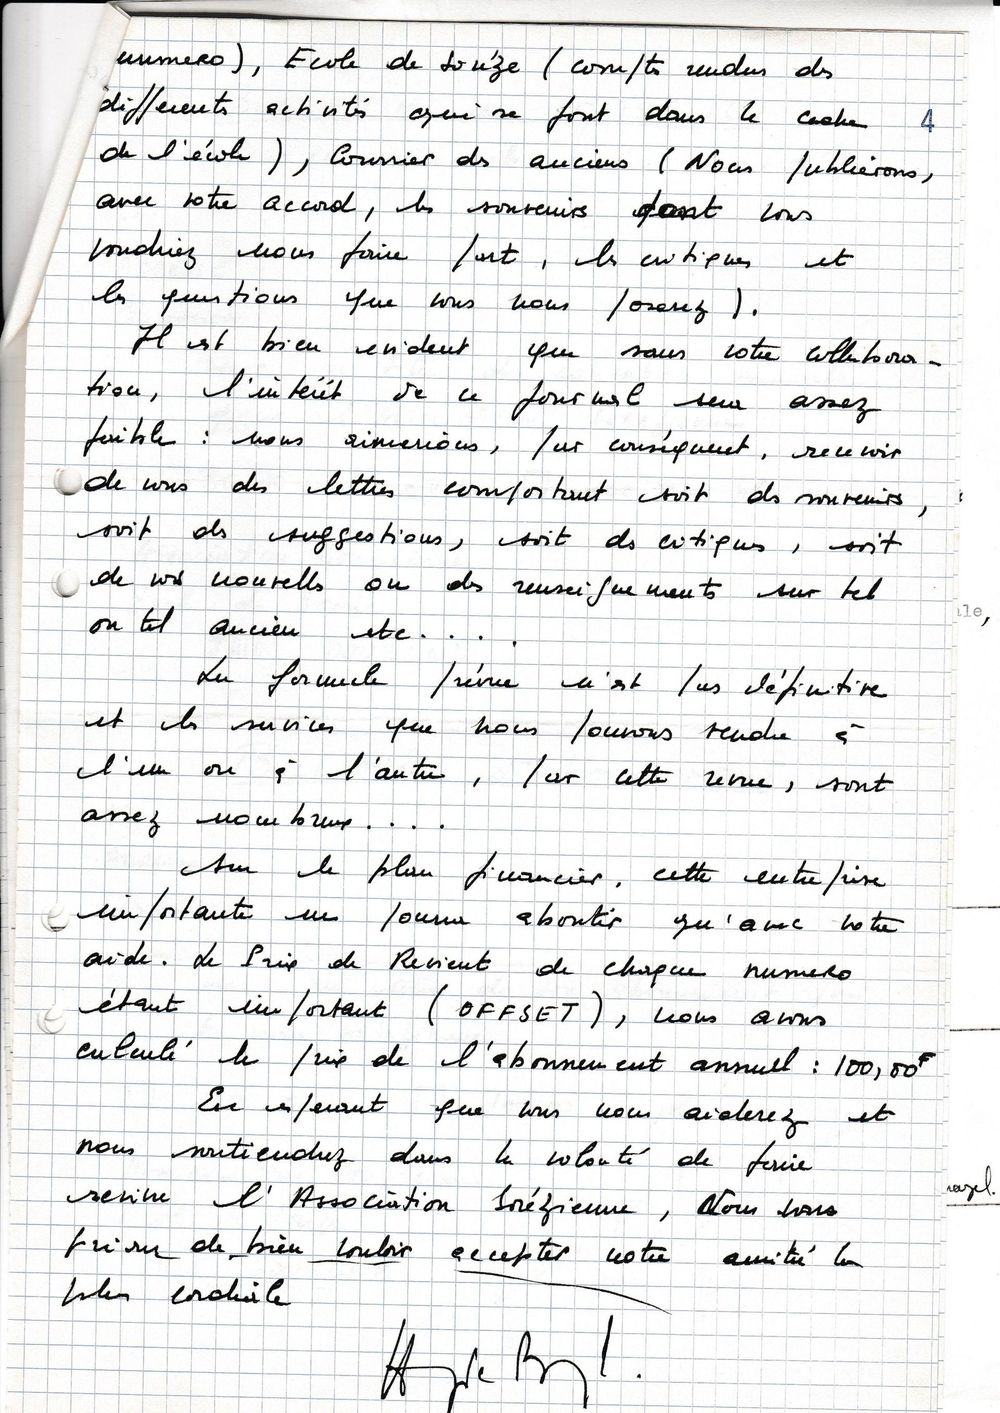 numero), Ecole de Sorèze (comptes rendus des
différents activités qui se font dans le cadre 4
de l'école), Courrier des anciens (Nous publierons,
avec votre accord, les souvenirs dont vous
voudriez nous faire part, les critiques et
les questions que vous nous poserez).
Il est bien evident que sans votre collabora-
tion, l'intérêt de ce journal sera assez
faible : nous aimerions, par conséquent, recevoir
de vous des lettres comportant soit des souvenirs,
soit des suggestions, soit des critiques, soit
de vos nouvelles ou des renseignements sur tel
ou tel ancien etc....
La formule prévue n'est pas définitive
et les services que nous pouvons rendre à
l'un ou à l'autre, par cette revue, sont
assez nombreux....
Sur le plan financier, cette entreprise
importante ne pourra aboutir qu'avec votre
aide. Le Prix de Revient de chaque numero
étant important (OFFSET), nous avons
calculé le prix de l'abonnement annuel : 100,00F
En esperant que vous nous aiderez et
nous soutiendrez dans la volonté de faire
revivre l'Association Sorézienne, Nous vous
prions de bien vouloir accepter notre amitié la
plus cordiale